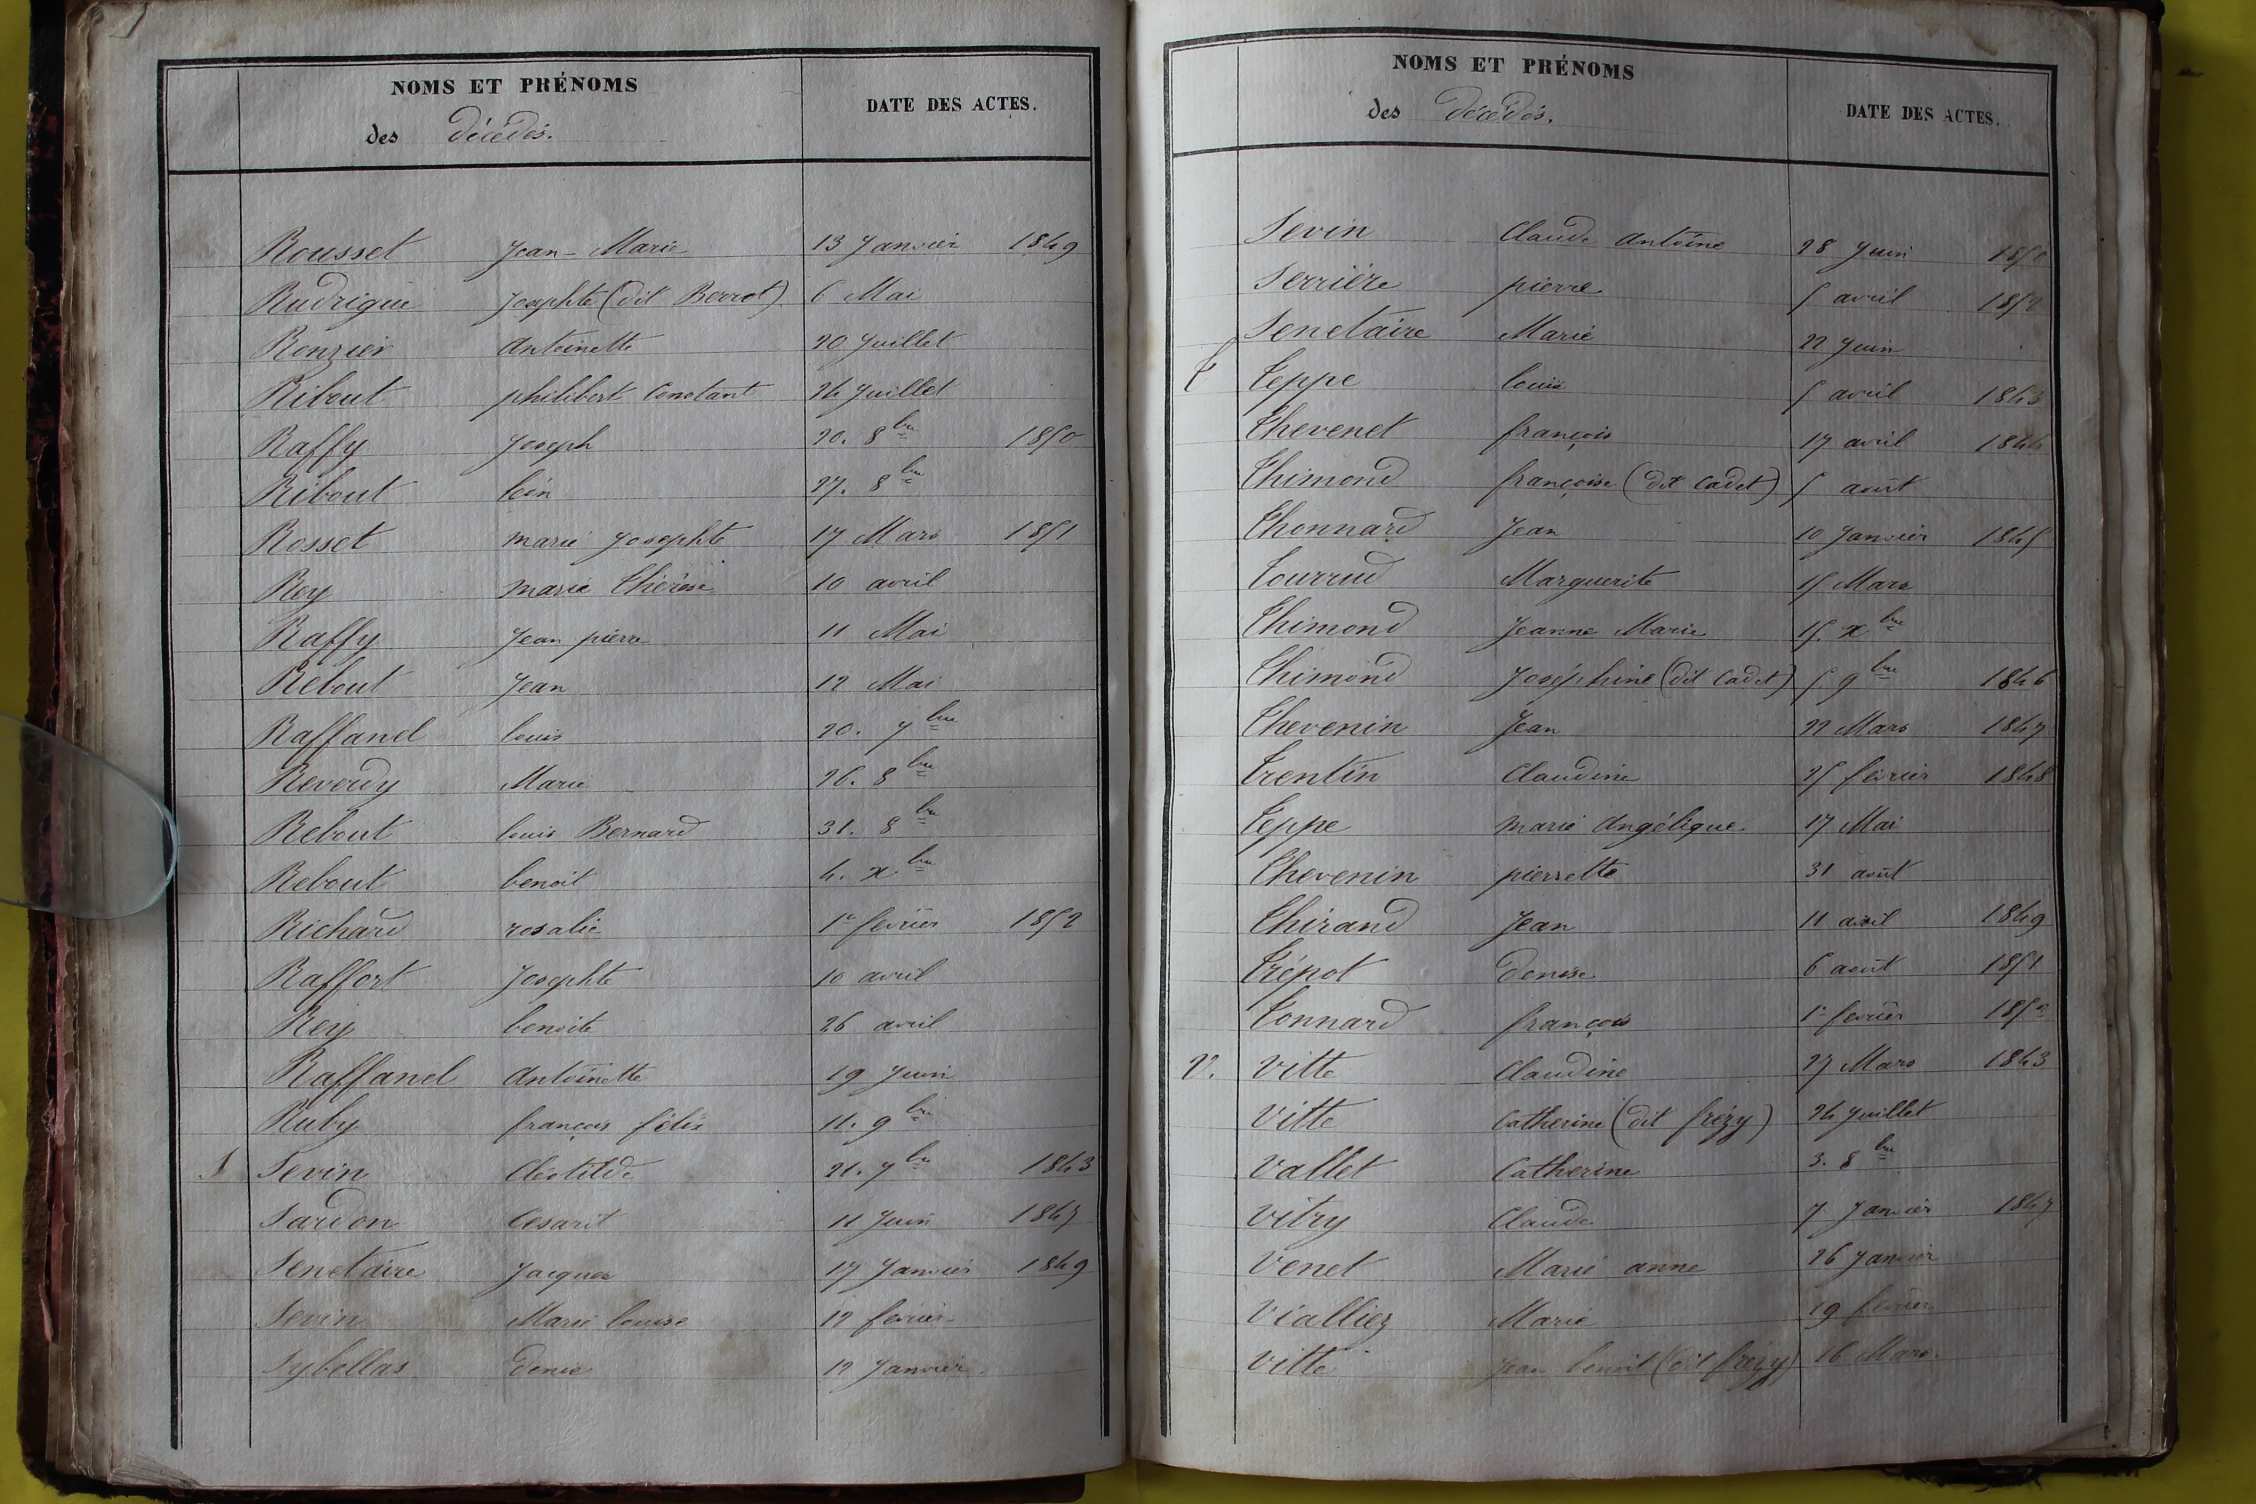 NOMS ET PRÉNOMS
des décédés.
DATE DES ACTES.
Rousset Jean-Marie 13 Janvier 1849
Rudrigue Josephte (dit Berrot) 6 Mai
Ronzier antoinette 20 Juillet
Ribout philibert Constant 24 Juillet
Raffy Joseph 20. 8bre 1850
Ribout 27. 8bre
Rosset marie Josephte 17 Mars 1851
Rey marie Thérèse 10 avril
Raffy Jean pierre 11 Mai
Rebout Jean 12 Mai
Raffanel louis 20. 7bre
Reverdy Marie 26. 8bre
Rebout louis Bernard 31. 8bre
Rebout benoit 4. xbre
Richard rosalie 1er fevrier 1852
Raffort Josephte 10 avril
Rey benoite 26 avril
Raffanel antoinette 19 Juin
Ruby françois félix 11. 9bre
S Sevin Cléotilde 21. 7bre 1843
Sardon Cesarit 11 Juin 1847
Senetaire Jacques 17 Janvier 1849
Sevin Marie louise 12 fevrier
Sybellas denis 12 Janvier
NOMS ET PRÉNOMS
des décédés.
DATE DES ACTES.
Sevin Claude antoine 28 Juin 1850
Serrière pierre 5 avril 1852
Senetaire Marie 22 Juin
T Teppe louis 5 avril 1843
Thevenet françois 17 avril 1844
Thimond françoise (dit Cadet) 5 août
Thonnard Jean 10 Janvier 1845
Tourrud Marguerite 15 Mars
Thimond Jeanne Marie 15. xbre
Thimond Joséphine (dit Cadet) 5 9bre 1846
Thevenin Jean 22 Mars 1847
Trentin Claudine 25 fevrier 1848
Teppe marie angélique 17 Mai
Thevenin pierrette 31 août
Thirand Jean 11 avril 1849
Trépot denise 6 août 1851
Tonnard françois 1er fevrier 1852
V. Vitte Claudine 27 Mars 1843
Vitte Catherine (dit frézy) 24 Juillet
Vallet Catherine 3. 8bre
Vitry Claude 7 Janvier 1847
Venet Marie anne 26 Janvier
Vialliez Marie 19 fevrier
Vitte Jean benoit (dit frézy) 16 Mars.